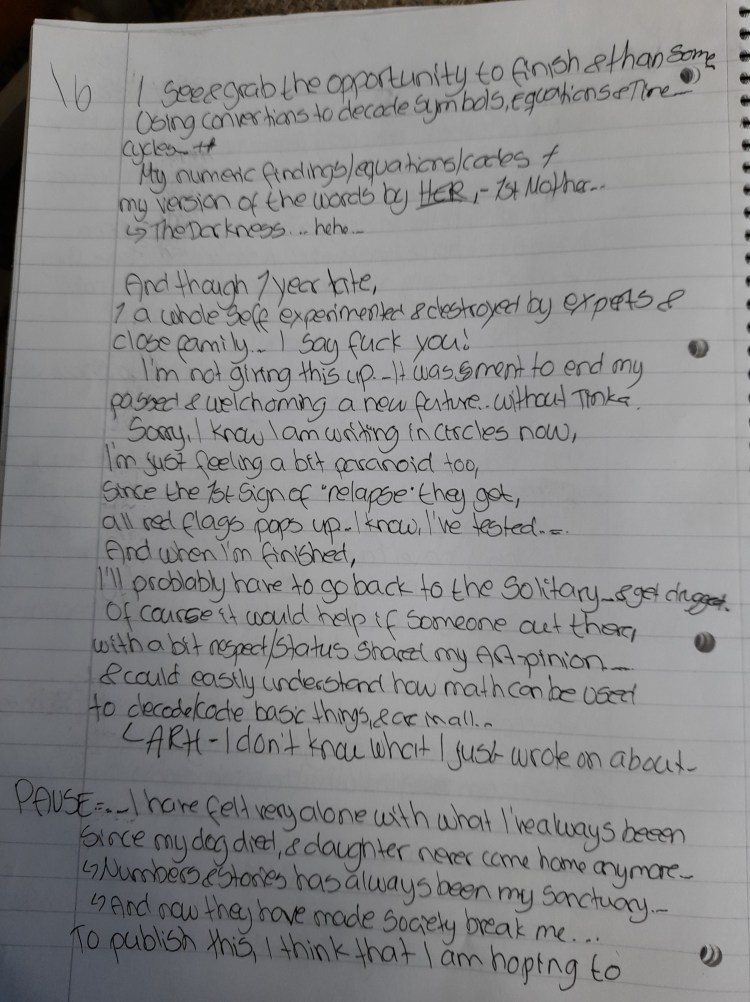 16
I see & grab the opportunity to finish & than some
Using convertions to decode symbols, equations & Time
cycles
My numeric findings/equations/codes +
my version of the words by HER, - 1st Mother...
↳ The Darkness... hehe...
And though 1 year late,
& a whole self experimented & destroyed by experts &
close family... I say fuck you!
I'm not giving this up... It was ment to end my
passed & welchoming a new future.. without
Sorry, I know I am writing in circles now,
I'm just feeling a bit paranoid too,
since the 1st sign of "relapse" they get,
all red flags pops up.. I know, I've tested...
And when I'm finished,
I'll problably have to go back to the Solitary... & get
Of course it would help if someone out there,
with a bit respect/status shared my
& could easily understand how math can be used
to decode/code basic things,
ARH - I don't know what I just wrote on about..
PAUSE... I have felt very alone with what I've always beeen
since my dog died, & daughter never come home anymore..
↳ Numbers & stories has always been my sanctuary...
↳ And now they have made society break me...
To publish this, I think that I am hoping to